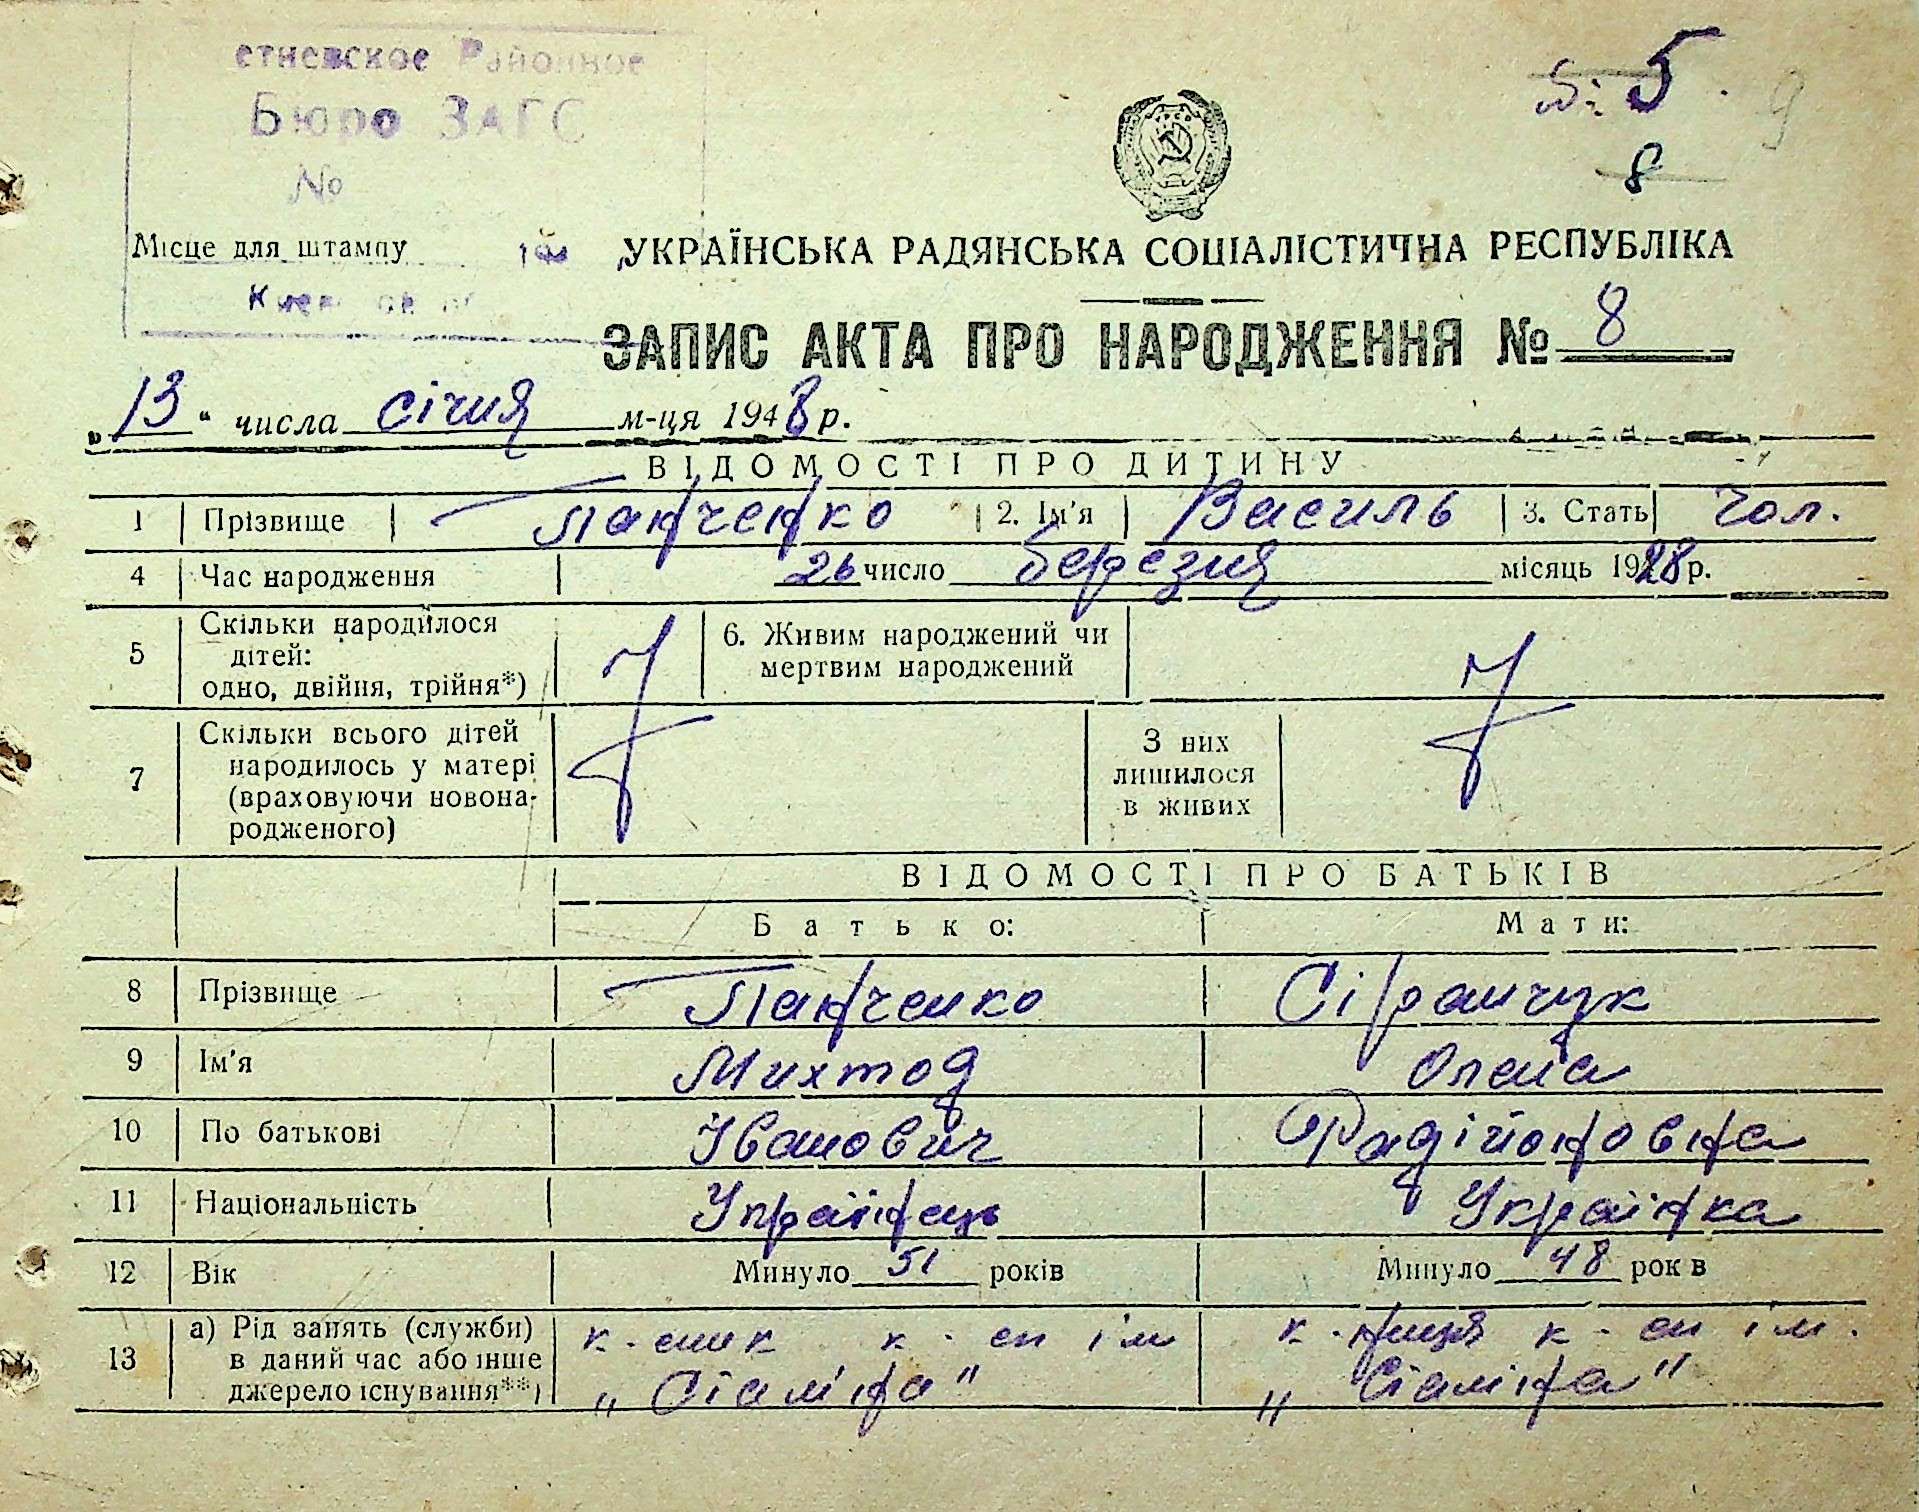 етневское Районное
Бюро ЗАГС
№
5
9
8
Місце для штампу
УКРАЇНСЬКА РАДЯНСЬКА СОЦІАЛІСТИЧНА РЕСПУБЛІКА
ЗАПИС АКТА ПРО НАРОДЖЕННЯ № 8
„13" числа січня м-ця 1948 р.
ВІДОМОСТІ ПРО ДИТИНУ
1 Прізвище Панченко 2. Ім'я Василь 3. Стать чол.
4 Час народження 26 число березня місяць 1928 р.
5 Скільки народилося
дітей:
одно, двійня, трійня*)
6. Живим народжений чи
мертвим народжений
7 Скільки всього дітей
народилось у матері
(враховуючи новона-
родженого)
З них
лишилося
в живих
ВІДОМОСТІ ПРО БАТЬКІВ
Батько: Мати:
8 Прізвище Панченко Сіранчук
9 Ім'я Михтод Олена
10 По батькові Іванович Радійоновна
11 Національність Українець Українка
12 Вік Минуло 51 років Минуло 48 рок в
13 а) Рід занять (служби)
в даний час або інше
джерело існування**)
к-сник к-сп ім
„Сталіна"
к-ниця к-сп ім.
„Сталіна"